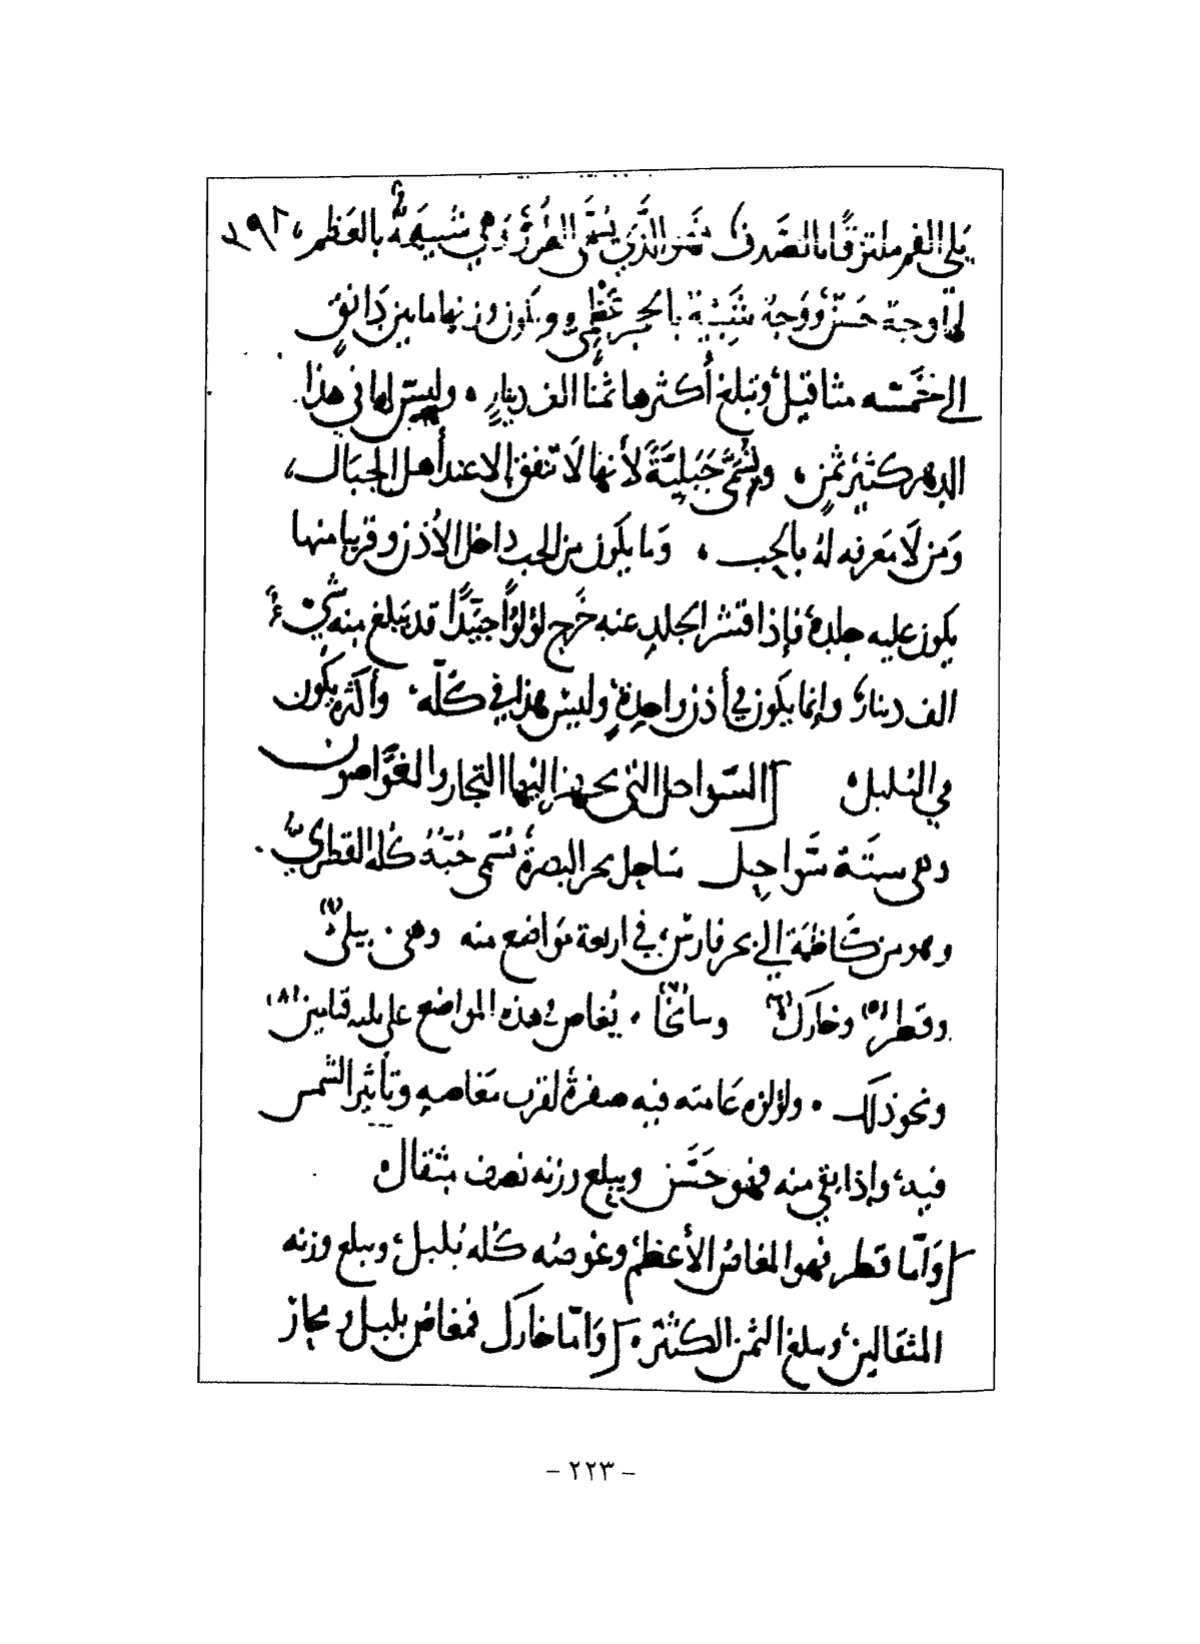 يَلي الفم ملتزقًا بالصَّدف، فهو الذَّي يُسَمَّى وَهي شبيهة بالعَظم، ٢٩٢
لها وجهٌ حَسَنٌ، وَوَجهٌ شبيهٌ بالحجر عَظْمِيّ ويكون وزنها ما بين دَانقٍ
إلى خَمسَه مثاقيل، وتبلغ أكثرها ثمنًا الف دينارٍ، وليسَ لها في هذا
الدهر كثيرُ ثمنٍ، ويُسَمَّى جَبَليَّةً لأنها لَا تنفق إلا عند أهل الجبَال،
وَمن لَا معَرفه لهُ بالحب، وَما يكَون من الحب داخل الأُذن وقريبا منها
يكون عليه جلدة، فإذا قشر الجلد عنه خَرج لؤلؤًا جيّدًا قد يَبلغ منه شيءٌ
الف دينار، وإنما يكون في أذن واحدةٍ، وليسَ هذا في كلّه، وأكثره يكون
في البُلبل [السّواحل التي يجهز إليها التجار والغوَّاصون
وهي ستَة سَّواحِل سَاحِل بحر البصرة، تُسَمى حَبَّهُ كُله القطريّ
وهو من كَاظمَة إلى بحر فارس، في اربعة مَواضع منه وهي بيلي(٤)
وقطر(٥) وخَارَك(٦) وسانحا(٧)، يُغاص في هذه المواضع على بليه قنامين(٨)
ونحو ذلك، ولؤلؤه عَامته فيه صفرةٌ لقرب مَغاصه وتأثير الشمس
فيه، وإذا بقي منه فهو حَسَن ويبلع وزنه نصف مثقال
[وَأمّا قطر فهو المغاصُ الأعظم، وغوصُه كله بُلبل، ويبلع وزنه
المثقالين، ويبلغ الثمن الكثيَر، [وَامّا خارَك فمغاصُ بلبل ومجاز
- ٢٢٣ -